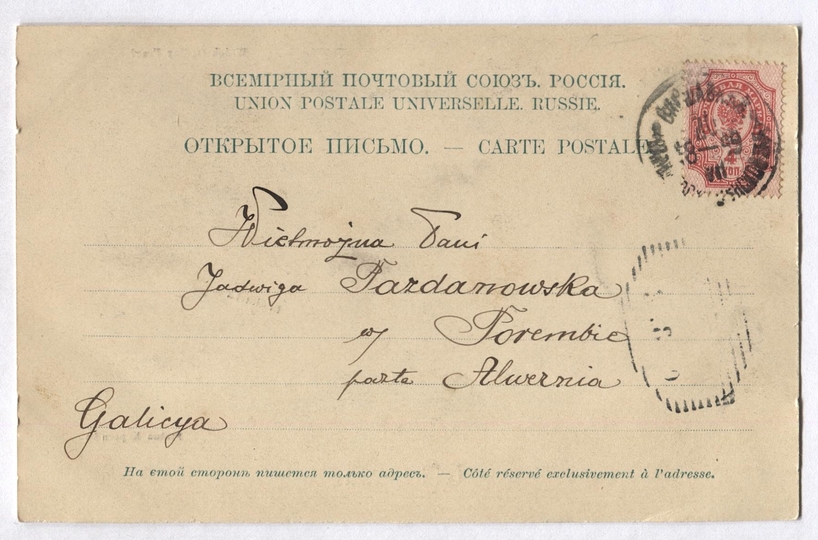 ВСЕМІРНЫЙ ПОЧТОВЫЙ СОЮЗЪ. РОССІЯ.
UNION POSTALE UNIVERSELLE. RUSSIE.
ОТКРЫТОЕ ПИСЬМО. — CARTE POSTALE
Wielmożna Pani
Jadwiga Pazdanowska
w/ Porembie
pozta Alwernia
Galicya
На етой сторонѣ пишется только адресъ. — Côté réservé exclusivement à l'adresse.